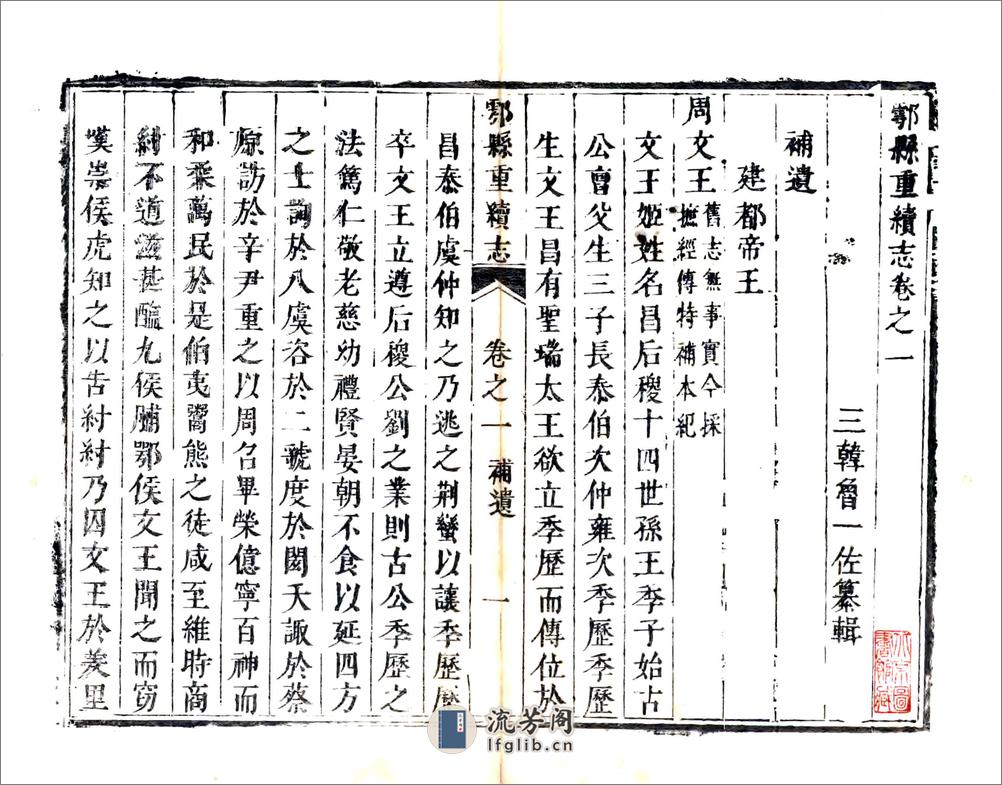 鄠縣重續志卷之一
三韓魯一佐纂輯
補遺
建都帝王
周文王舊志無事實今採
摭經傳特補本紀
文王姬姓名昌后稷十四世孫王季子始古
公亶父生三子長泰伯次仲雍次季歷季歷
生文王昌有聖瑞太王欲立季歷而傳位於
鄠縣重續志 卷之一 補遺 一
昌泰伯虞仲知之乃逃之荆蠻以讓季歷歷
卒文王立遵后稷公劉之業則古公季歷之
法篤仁敬老慈幼禮賢晏朝不食以延四方
之士詢於八虞咨於二虢度於閎夭諏於蔡
原訪於辛尹重之以周召畢榮億寧百神而
和乘萬民於是伯夷鬻熊之徒咸至維時商
紂不道滋甚醢九侯脯鄂侯文王聞之而竊
嘆崇侯虎知之以告紂紂乃囚文王於羑里
流芳阁
lfglib.cn